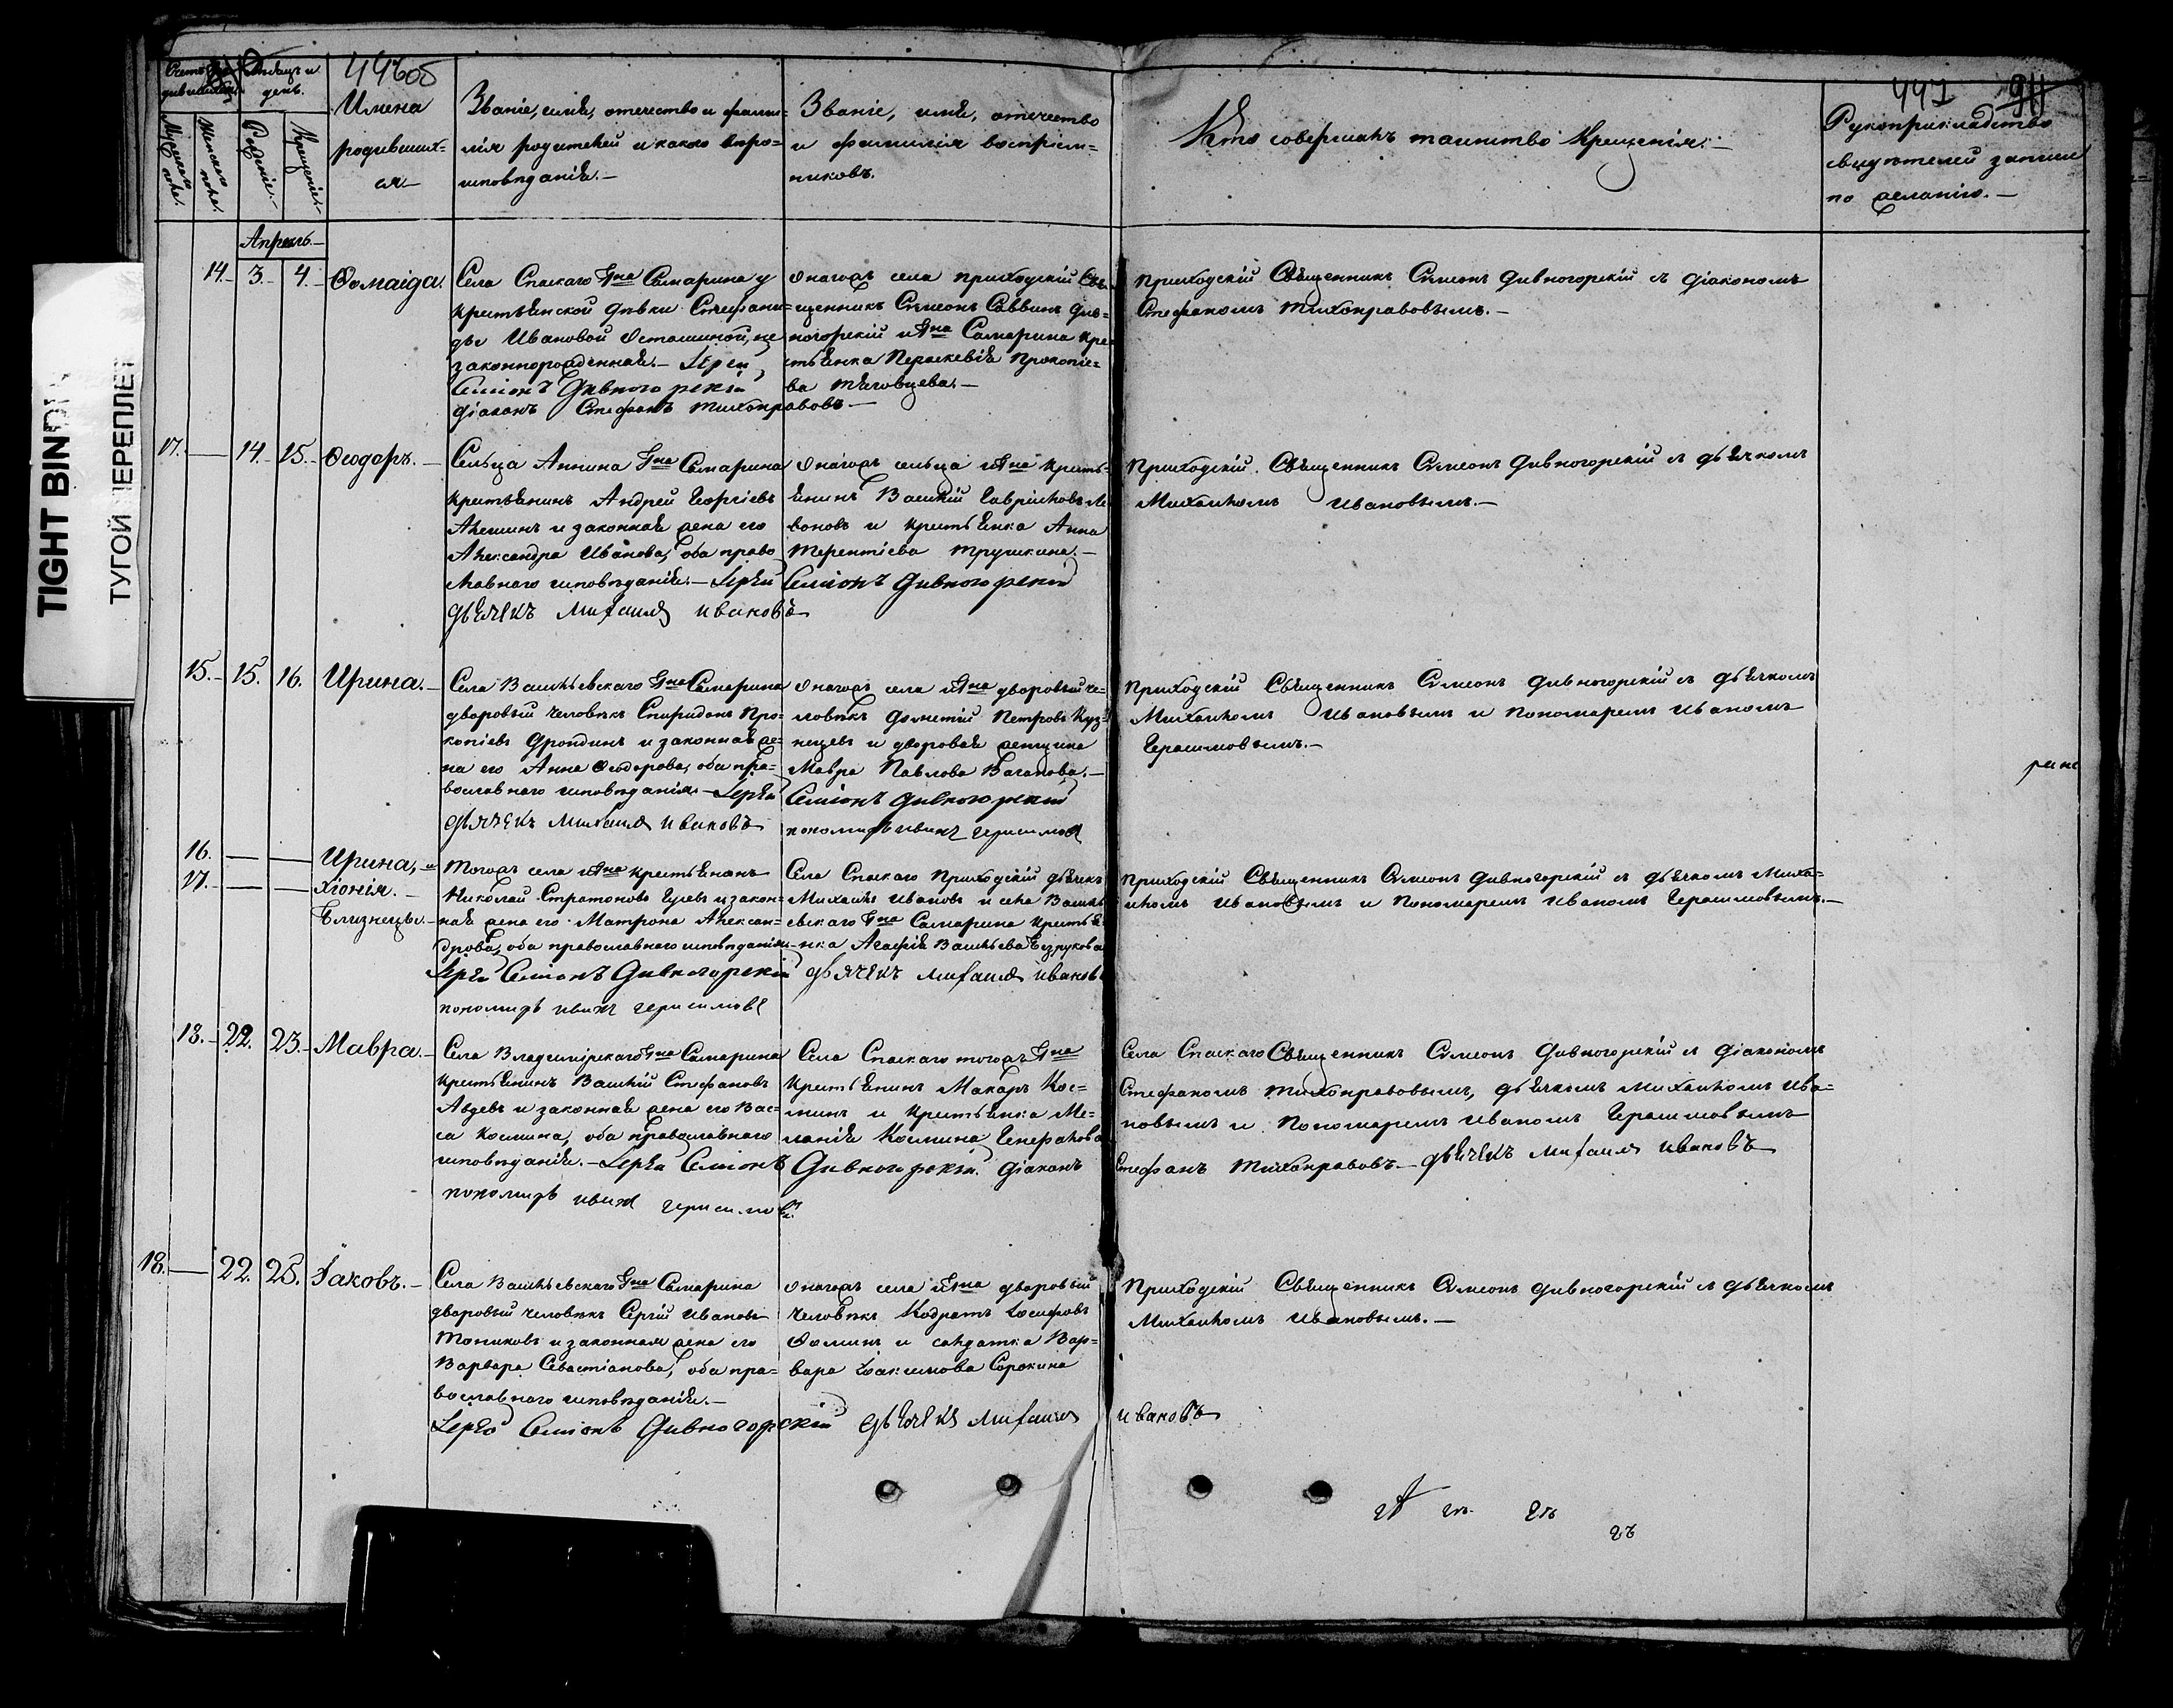 TIGHT BINDI
ТУГОЙ ПЕРЕПЛЕТ
446об
441
Мѣсяцъ и день.
Мужеска пола.
Женска пола.
Рожденіе.
Крещеніе.
Имена
родивших-
ся.
Званіе, имя, отечество и фами-
лія родителей и какого вѣро-
исповѣданія.
Званіе, имя, отечество
и фамилія воспріем-
никовъ.
Кто совершалъ таинство Крещенія.
Рукоприкладство
свидѣтелей записи
по желанію.
Апрель.
14. 3. 4. Ѳомаіда.
Села Спаскаго Гна Самарина у
крестьянской дѣвки Стефани-
ды Ивановой Осташиной, не
законнорожденная. Іерей
Симіонъ Дивногорскій
діаконъ Стефанъ Тихонравовъ
Онагожъ села приходскій Свя-
щенникъ Симеонъ Саввинъ Див-
ногорскій и Гна Самарина кре-
стьянка Перасковія Прокопіе-
ва Тяговцева.
Приходскій Священникъ Симеонъ Дивногорскій съ діакономъ
Стефаномъ Тихонравовымъ.
17. 14. 15. Ѳеодоръ.
Сельца Аннина Гна Самарина
крестьянинъ Андрей Георгіевъ
Алешинъ и законная жена его
Александра Иванова, оба право
славнаго исповѣданія. Іерей Симіонъ Дивногорскій
дьячекъ Михаилъ Ивановъ
Онагожъ сельца и Гна кресть-
янинъ Василій Гавриловъ Ле-
воновъ и крестьянка Анна
Терентіева Трушкина.
Приходскій Священникъ Симеонъ Дивногорскій съ дьячкомъ
Михаиломъ Ивановымъ.
15. 15. 16. Ирина.
Села Васильевскаго Гна Самарина
дворовый человѣкъ Спиридонъ Про-
копіевъ Дрондинъ и законная же-
на его Анна Ѳеодорова, оба пра-
вославнаго исповѣданія. Іерей Симіонъ Дивногорскій
дьячекъ Михаилъ Ивановъ пономарь Иванъ Герасимовъ
Онагожъ села и Гна дворовый че-
ловѣкъ Дометій Петровъ Куз-
нецовъ и дворовая женщина
Мавра Павлова Баганова.
Приходскій Священникъ Симеонъ Дивногорскій съ дьячкомъ
Михаиломъ Ивановымъ и Пономаремъ Иваномъ
Герасимовымъ.
16. Ирина, и
17. Хіонія.
Близнецы.
Тогожъ села и Гна крестьянинъ
Николай Стратоновъ Гуевъ и закон-
ная жена его Матрона Алексан-
дрова, оба православнаго исповѣданія
Іерей Симіонъ Дивногорскій дьячекъ Михаилъ Ивановъ
пономарь Иванъ Герасимовъ
Села Спаскаго Приходскій дьячекъ
Михаилъ Ивановъ и села Василь
евскаго Гна Самарина крестья
нка Агафія Васильева Безрукова
Приходскій Священникъ Симеонъ Дивногорскій съ дьячкомъ Миха-
иломъ Ивановымъ и Пономаремъ Иваномъ Герасимовымъ.
18. 22. 23. Мавра.
Села Владимірскаго Гна Самарина
крестьянинъ Василій Стефановъ
Авдевъ и законная жена его Вас-
са Космина, оба православнаго
исповѣданія. Іерей Симіонъ Дивногорскій. діаконъ Стефанъ Тихонравовъ. дьячекъ Михаилъ Ивановъ
пономарь Иванъ Герасимовъ
Села Спаскаго тогожъ Гна
крестьянинъ Макаръ Кос-
минъ и крестьянка Ме-
ланія Космина Генералова
Села Спаскаго Священникъ Симеонъ Дивногорскій съ діакономъ
Стефаномъ Тихонравовымъ, дьячкомъ Михаиломъ Ива-
новымъ и Пономаремъ Иваномъ Герасимовымъ
18. 22. 25. Іаковъ.
Села Васильевскаго Гна Самарина
дворовый человѣкъ Сергій Ивановъ
Тониковъ и законная жена его
Варвара Севастіанова, оба пра-
вославнаго исповѣданія.
Іерей Симіонъ Дивногорскій дьячекъ Михаилъ Ивановъ
Онагожъ села и Гна дворовый
человѣкъ Кодратъ Іосифовъ
Ѳоминъ и салдатка Вар-
вара Іоакимова Сорокина
Приходскій Священникъ Симеонъ Дивногорскій съ дьячкомъ
Михаиломъ Ивановымъ.